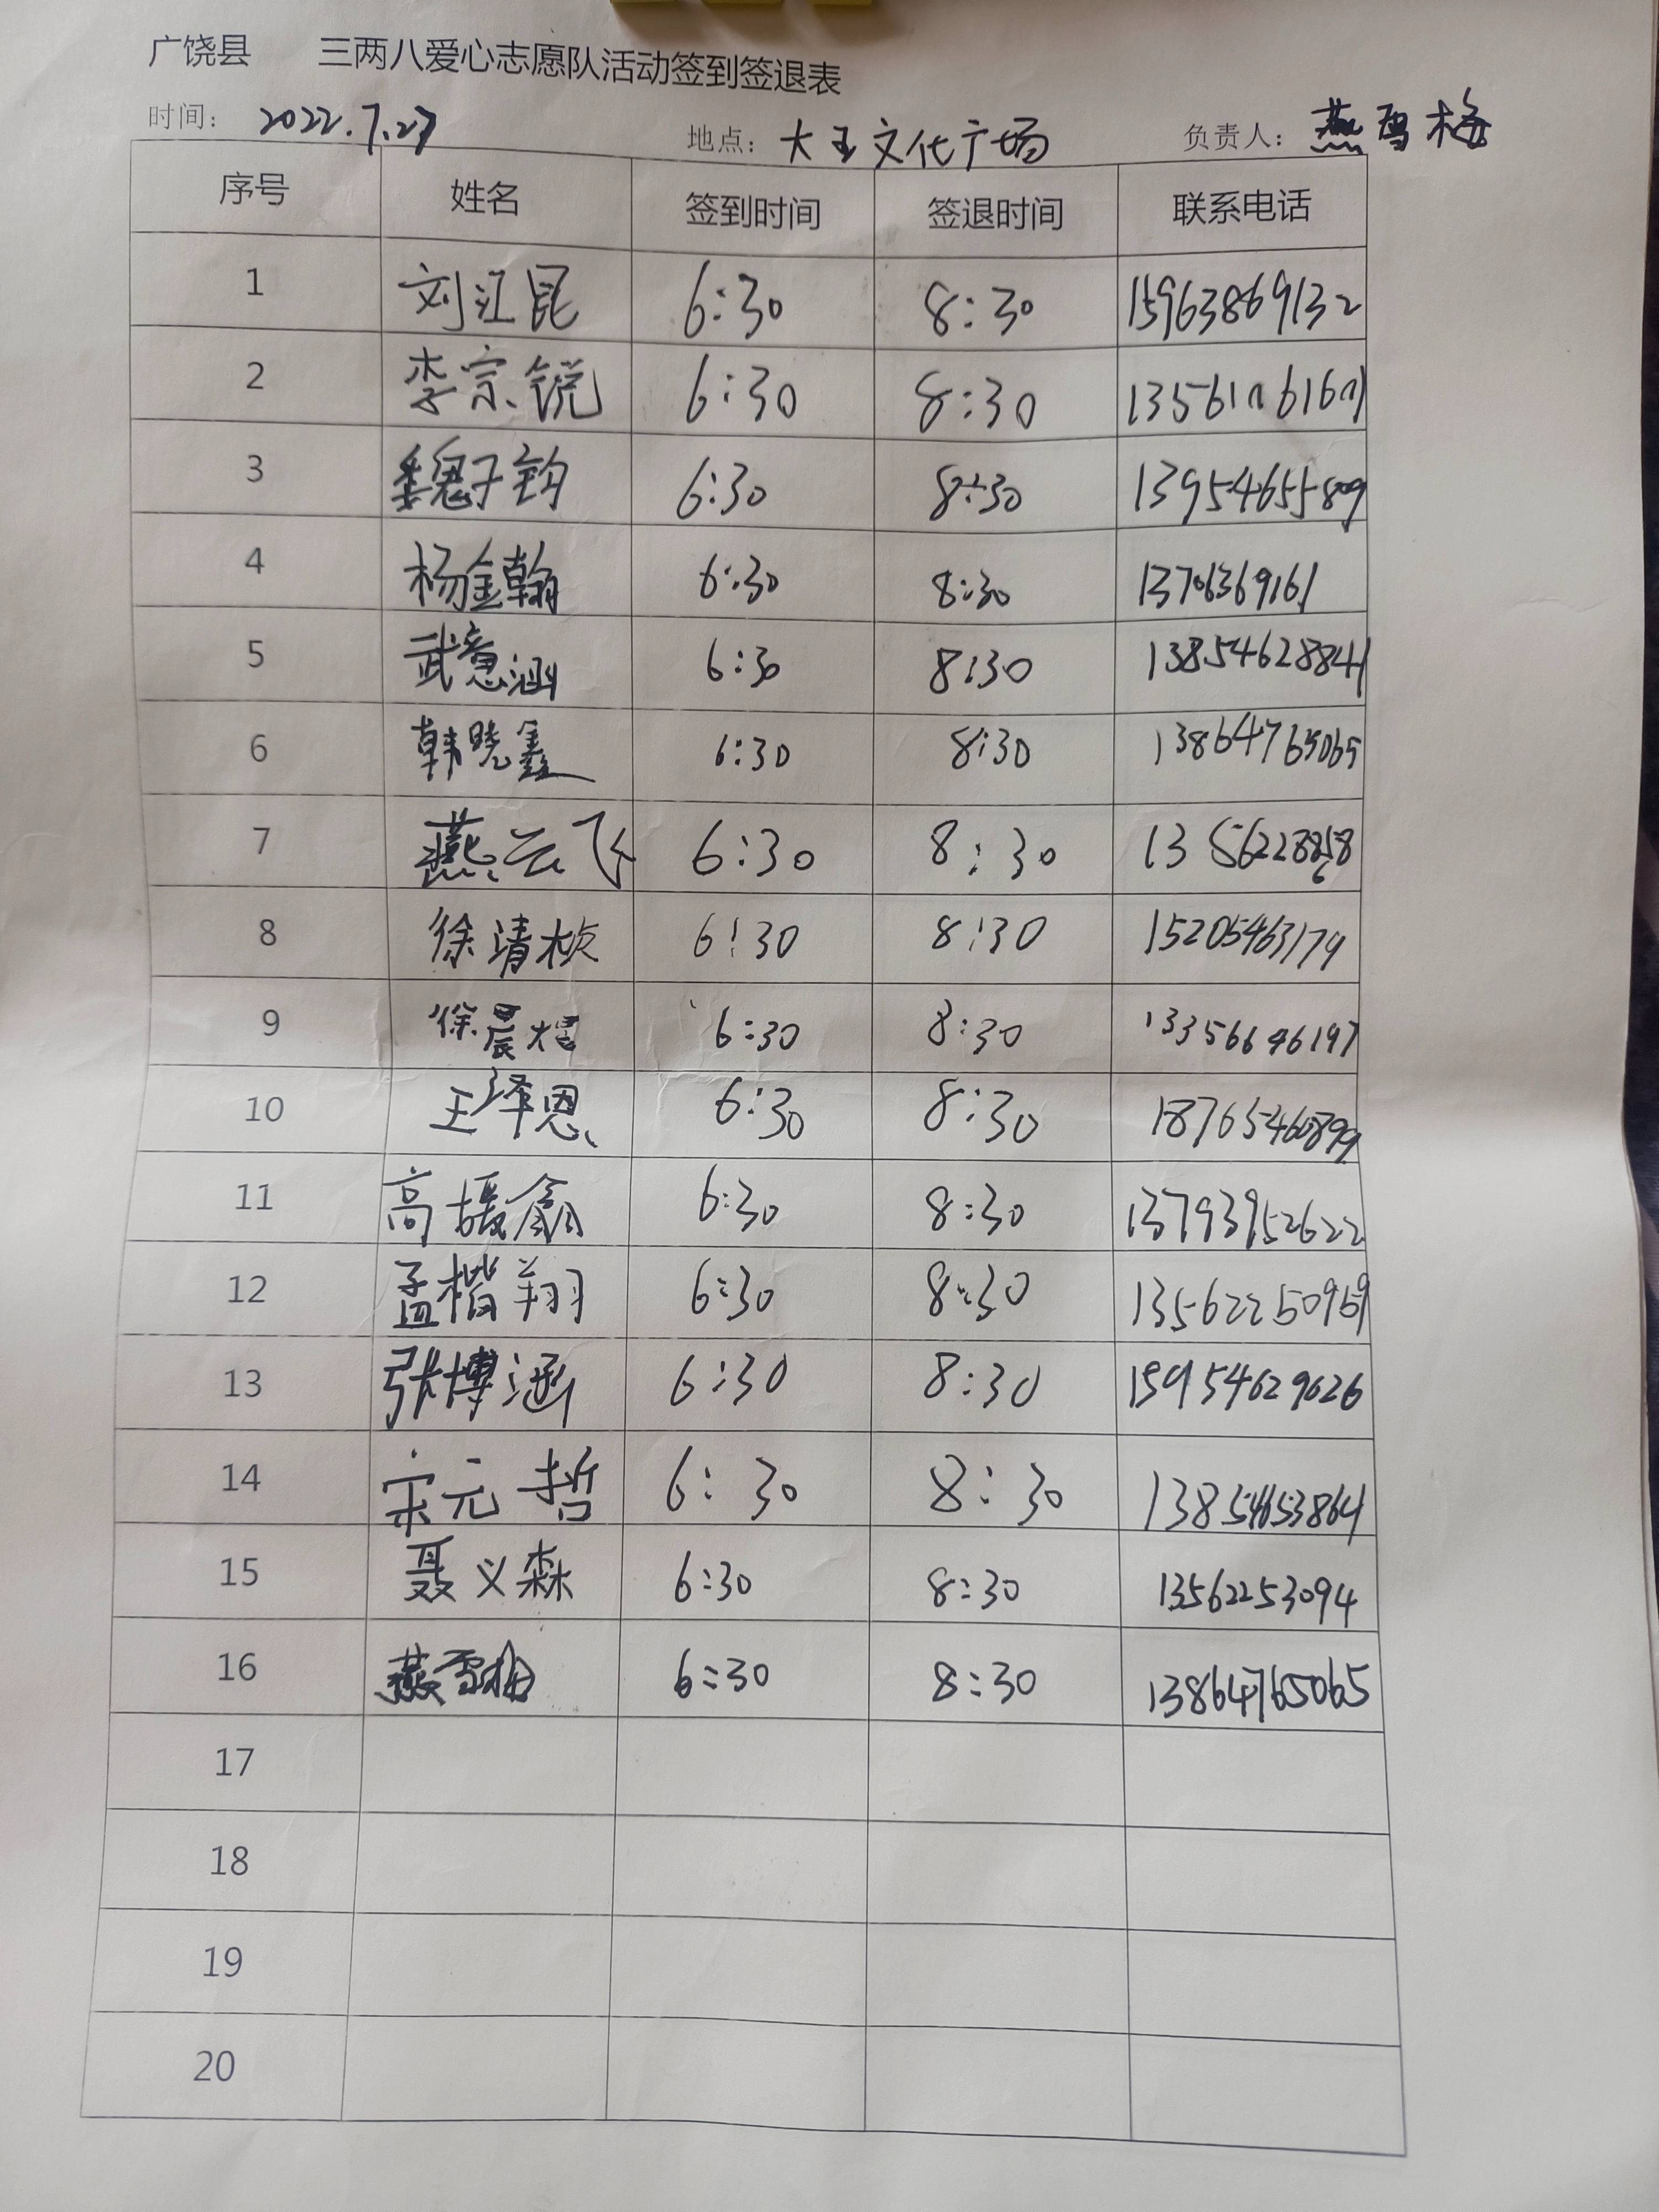 广饶县 三两八爱心志愿队活动签到签退表
时间: 2022.7.27 地点: 大王文化广场 负责人: 燕雪梅
序号 姓名 签到时间 签退时间 联系电话
1 刘江昆 6:30 8:30 15963869132
2 李宗锐 6:30 8:30
3 魏子钧 6:30 8:30 13954655809
4 杨金翰 6:30 8:30
5 武意涵 6:30 8:30 13854628841
6 韩晓鑫 6:30 8:30 13864765065
7 燕云飞 6:30 8:30
8 徐清桢 6:30 8:30 15205463179
9 徐晨煜 6:30 8:30 13356646197
10 王泽恩 6:30 8:30 18765460899
11 高媛鑫 6:30 8:30 13793952622
12 孟楷翔 6:30 8:30 13562250969
13 张博涵 6:30 8:30 15954629626
14 宋元哲 6:30 8:30 13854653864
15 聂义森 6:30 8:30 13562253094
16 燕雪梅 6:30 8:30 13864765065
17
18
19
20